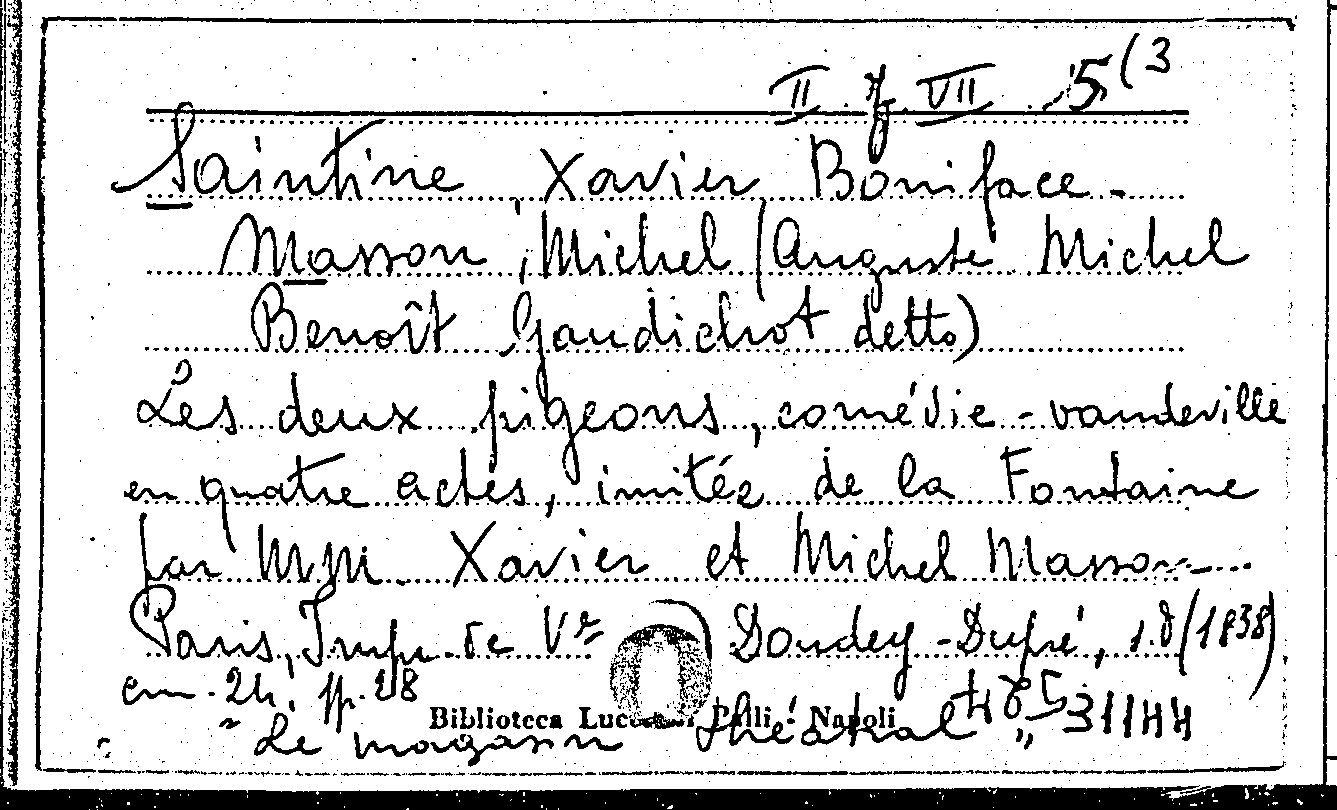 II Z VII 5(3
Saintine, Xavier Boniface -
Masson, Michel (Auguste Michel
Benoît Gaudichot detto)
Les deux pigeons, comédie-vaudeville
en quatre actes, imitée de la Fontaine
par MM. Xavier et Michel Masson
Paris, Imp. de Vᵉ Doudey-Dupré, s.d (1838)
cm. 24. pp. 28
Biblioteca Lucchesi Palli - Napoli
"Le magasin théâtral" 31144